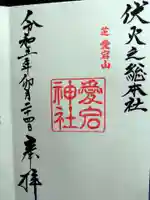 伏火之総本社
芝 愛宕山
愛宕神社
令和五年卯月二十四日 奉拝